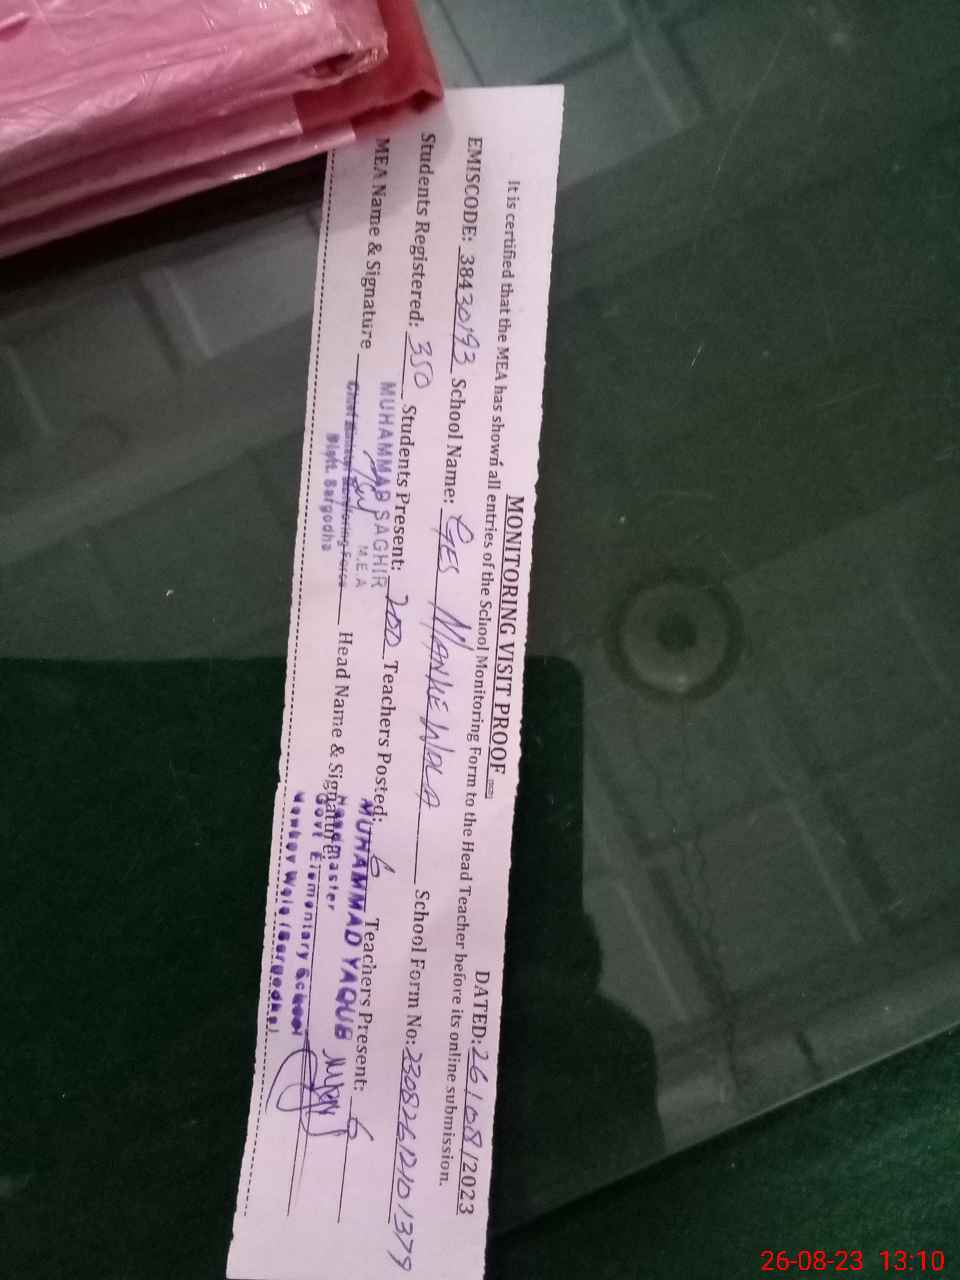 MONITORING VISIT PROOF
DATED: 26/08/2023
It is certified that the MEA has shown all entries of the School Monitoring Form to the Head Teacher before its online submission.
EMISCODE: 38430193 School Name: GES MANKE WALA School Form No: 23082612101379
Students Registered: 350 Students Present: 200 Teachers Posted: 6 Teachers Present: 6
MEA Name & Signature Head Name & Signature:
MUHAMMAD SAGHIR
M.E.A
Chief Minister Monitoring Force
Distt. Sargodha
MUHAMMAD YAQUB
Headmaster
Govt Elementary School
Mankey Wala (Sargodha)
26-08-23 13:10